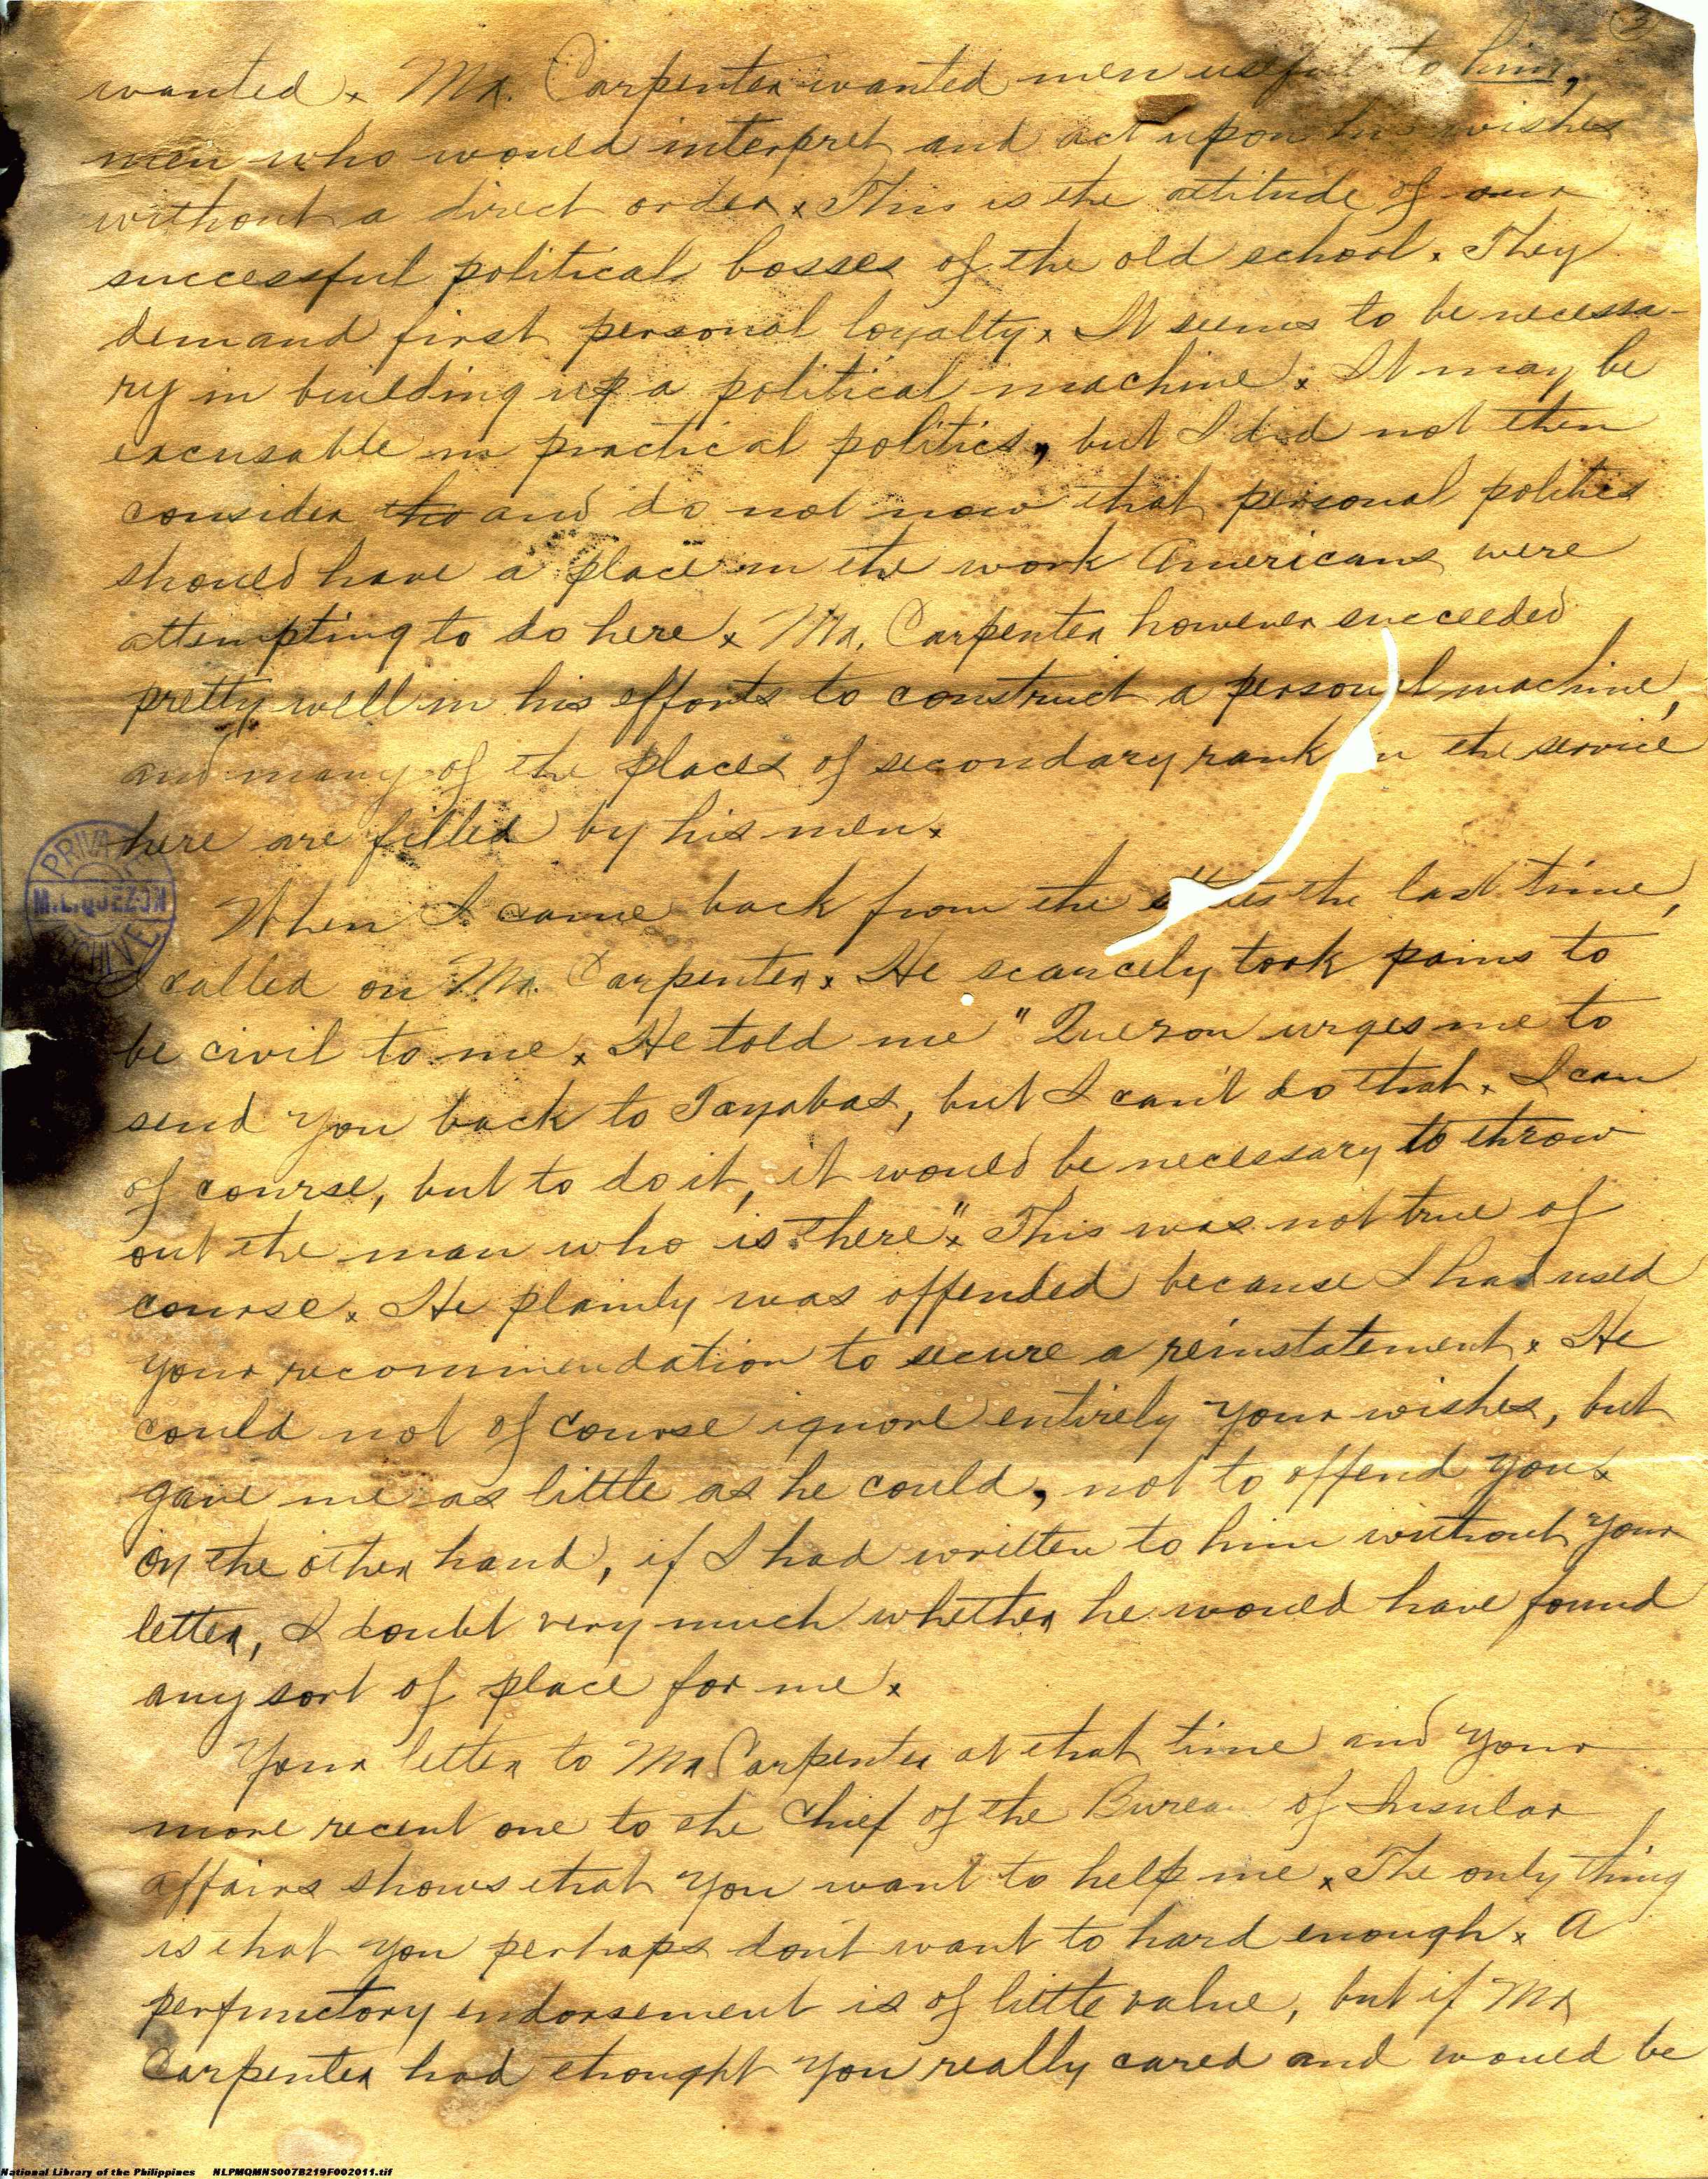 3
wanted. Mr. Carpenter wanted men useful to him,
men who would interpret and act upon his wishes
without a direct order. This is the attitude of our
successful political bosses of the old school. They
demand first personal loyalty. It seems to be necessa-
ry in building up a political machine. It may be
excusable in practical politics, but I did not then
consider tho and do not now that personal politics
should have a place in the work Americans were
attempting to do here. Mr. Carpenter however succeeded
pretty well in his efforts to construct a personal machine,
and many of the places of secondary rank in the service
here are filled by his men.
PRIVATE
M.L.QUEZON
ARCHIVE
When I came back from the states the last time,
I called on Mr. Carpenter. He scarcely took pains to
be civil to me. He told me "Quezon urges me to
send you back to Tayabas, but I can't do that. I can
of course, but to do it, it would be necessary to throw
out the man who is there". This was not true of
course. He plainly was offended because I had used
your recommendation to secure a reinstatement. He
could not of course ignore entirely your wishes, but
gave me as little as he could, not to offend you.
On the other hand, if I had written to him without your
letter, I doubt very much whether he would have found
any sort of place for me.
Your letter to Mr Carpenter at that time and your
more recent one to the Chief of the Bureau of Insular
affairs shows that you want to help me. The only thing
is that you perhaps don't want to hard enough. A
perfunctory endorsement is of little value, but if Mr
Carpenter had thought you really cared and would be
National Library of the Philippines NLPMQMNS007B219F002011.tif